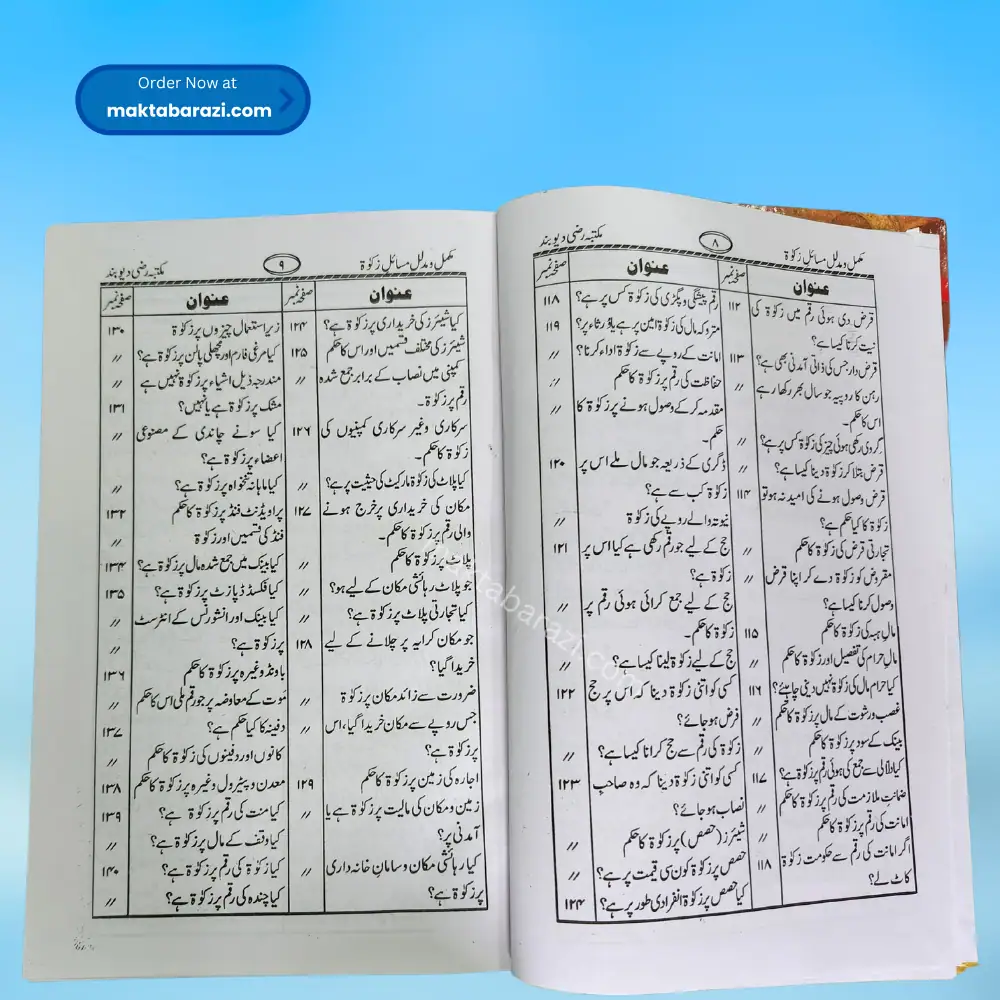 Order Now at
maktabarazi.com
مکمل و مدلل مسائل زکوٰۃ ۸ مکتبہ رضی دیوبند
عنوان صفحہ نمبر
قرض دی ہوئی رقم میں زکوٰۃ کی ۱۱۲
نیت کرنا کیسا ہے؟
قرض دار جس کی ذاتی آمدنی بھی ہے؟ ۱۱۳
رہن کا روپیہ جو سال بھر رکھا رہے 〃
اس کا حکم۔
گروی رکھی ہوئی چیز کی زکوٰۃ کس پر ہے؟ 〃
قرض بتلا کر زکوٰۃ دینا کیسا ہے؟ 〃
قرض وصول ہونے کی امید نہ ہو تو ۱۱۴
زکوٰۃ کا کیا حکم ہے؟
تجارتی قرض کی زکوٰۃ کا حکم 〃
مقروض کو زکوٰۃ دے کر اپنا قرض 〃
وصول کرنا کیسا ہے؟
مال ہبہ کی زکوٰۃ کا حکم ۱۱۵
مال حرام کی تفصیل اور زکوٰۃ کا حکم 〃
کیا حرام مال کی زکوٰۃ نہیں دینی چاہئے؟ ۱۱۶
غصب و رشوت کے مال پر زکوٰۃ کا حکم 〃
بینک کے سود پر زکوٰۃ کا حکم 〃
کیا دلالی سے جمع کی ہوئی رقم پر زکوٰۃ ہے؟ ۱۱۷
ضمانت ملازمت کی رقم پر زکوٰۃ کا حکم 〃
امانت کی رقم پر زکوٰۃ کا حکم 〃
اگر امانت کی رقم سے حکومت زکوٰۃ ۱۱۸
کاٹ لے؟
عنوان صفحہ نمبر
رقم پیشگی و پگڑی کی زکوٰۃ کس پر ہے؟ ۱۱۸
متروکہ مال کی زکوٰۃ امین پر ہے یا ورثاء پر؟ ۱۱۹
امانت کے روپے سے زکوٰۃ اداء کرنا؟ 〃
حفاظت کی رقم پر زکوٰۃ کا حکم 〃
مقدمہ کر کے وصول ہونے پر زکوٰۃ کا 〃
حکم۔
ڈگری کے ذریعہ جو مال ملے اس پر ۱۲۰
زکوٰۃ کب سے ہے؟
نیوتہ والے روپے کی زکوٰۃ 〃
حج کے لیے جو رقم رکھی ہے کیا اس پر ۱۲۱
زکوٰۃ ہے؟
حج کے لیے جمع کرائی ہوئی رقم پر 〃
زکوٰۃ کا حکم۔
حج کے لیے زکوٰۃ لینا کیسا ہے؟ 〃
کسی کو اتنی زکوٰۃ دینا کہ اس پر حج ۱۲۲
فرض ہو جائے؟
زکوٰۃ کی رقم سے حج کرانا کیسا ہے؟ 〃
کسی کو اتنی زکوٰۃ دینا کہ وہ صاحب ۱۲۳
نصاب ہو جائے؟
شیئرز (حصص) پر زکوٰۃ کا حکم 〃
حصص پر زکوٰۃ کون سی قیمت پر ہے؟ 〃
کیا حصص پر زکوٰۃ انفرادی طور پر ہے؟ ۱۲۴
مکمل و مدلل مسائل زکوٰۃ ۹ مکتبہ رضی دیوبند
عنوان صفحہ نمبر
کیا شیئرز کی خریداری پر زکوٰۃ ہے؟ ۱۲۴
شیئرز کی مختلف قسمیں اور اس کا حکم ۱۲۵
کمپنی میں نصاب کے برابر جمع شدہ 〃
رقم پر زکوٰۃ۔
سرکاری وغیر سرکاری کمپنیوں کی ۱۲۶
زکوٰۃ کا حکم۔
کیا پلاٹ کی زکوٰۃ مارکیٹ کی حیثیت پر ہے؟ 〃
مکان کی خریداری پر خرچ ہونے ۱۲۷
والی رقم پر زکوٰۃ کا حکم۔
پلاٹ پر زکوٰۃ کا حکم 〃
جو پلاٹ رہائشی مکان کے لیے ہو؟ 〃
کیا تجارتی پلاٹ پر زکوٰۃ ہے؟ 〃
جو مکان کرایہ پر چلانے کے لیے ۱۲۸
خریدا گیا؟
ضرورت سے زائد مکان پر زکوٰۃ 〃
جس روپے سے مکان خریدا گیا، اس 〃
پر زکوٰۃ ہے؟
اجارہ کی زمین پر زکوٰۃ کا حکم ۱۲۹
زمین و مکان کی مالیت پر زکوٰۃ ہے یا 〃
آمدنی پر؟
کیا رہائشی مکان و سامان خانہ داری 〃
پر زکوٰۃ ہے؟
عنوان صفحہ نمبر
زیر استعمال چیزوں پر زکوٰۃ ۱۳۰
کیا مرغی فارم اور مچھلی پالن پر زکوٰۃ ہے؟ 〃
مندرجہ ذیل اشیاء پر زکوٰۃ نہیں ہے 〃
مشک پر زکوٰۃ ہے یا نہیں؟ ۱۳۱
کیا سونے چاندی کے مصنوعی 〃
اعضاء پر زکوٰۃ ہے؟
کیا ماہانہ تنخواہ پر زکوٰۃ ہے؟ 〃
پراویڈنٹ فنڈ پر زکوٰۃ کا حکم ۱۳۲
فنڈ کی قسمیں اور زکوٰۃ 〃
کیا بینک میں جمع شدہ مال پر زکوٰۃ ہے؟ ۱۳۴
کیا فکسڈ ڈپازٹ پر زکوٰۃ ہے؟ ۱۳۵
کیا بینک اور انشورنس کے انٹرسٹ 〃
پر زکوٰۃ ہے؟
باونڈ وغیرہ پر زکوٰۃ کا حکم ۱۳۶
موت کے معاوضہ پر جو رقم ملی اس کا حکم 〃
دفینہ کا کیا حکم ہے؟ ۱۳۷
کانوں اور دفینوں کی زکوٰۃ کا حکم 〃
معدن و پیٹرول وغیرہ پر زکوٰۃ کا حکم ۱۳۸
کیا منت کی رقم پر زکوٰۃ ہے؟ ۱۳۹
کیا وقف کے مال پر زکوٰۃ ہے؟ 〃
کیا زکوٰۃ کی رقم پر زکوٰۃ ہے؟ ۱۴۰
کیا چندہ کی رقم پر زکوٰۃ ہے؟ 〃
maktabarazi.com